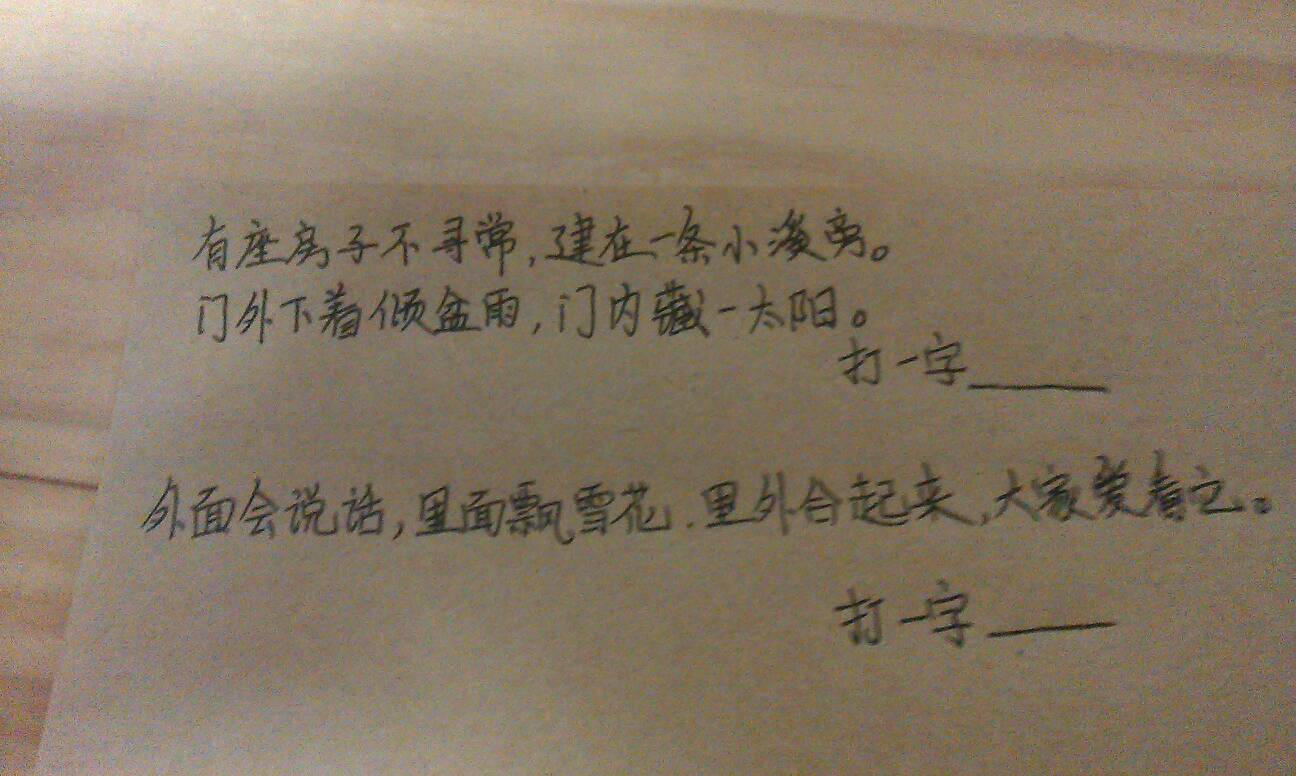 有座房子不寻常,建在一条小溪旁。
门外下着倾盆雨,门内藏一太阳。
打一字
外面会说话,里面飘雪花.里外合起来,大家爱看它。
打一字